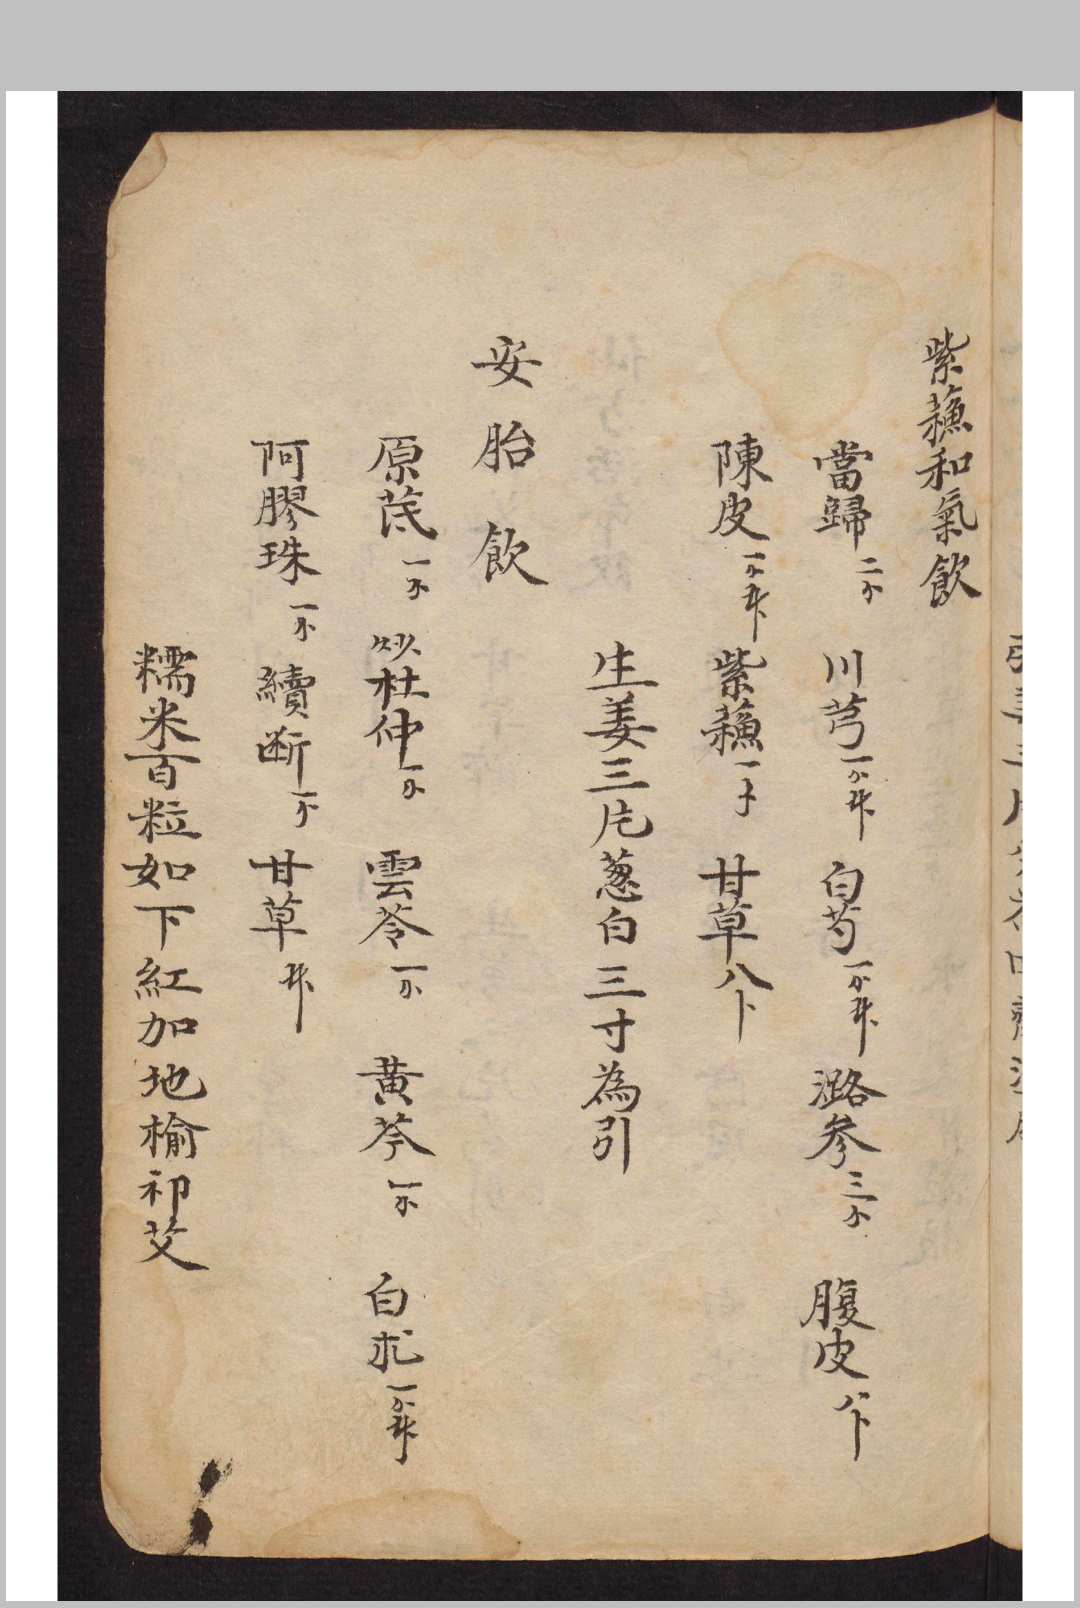 紫蘓和氣飲
當歸二个 川芎一个半 白芍一个半 潞參三个 腹皮八卜
陳皮一个半 紫蘓一子 甘草八卜
生姜三片葱白三寸為引
安胎飲
原芪一个 炒杜仲一个 雲苓一个 黄芩一个 白朮一个半
阿膠珠一个 續断一个 甘草半
糯米百粒如下紅加地榆祁艾